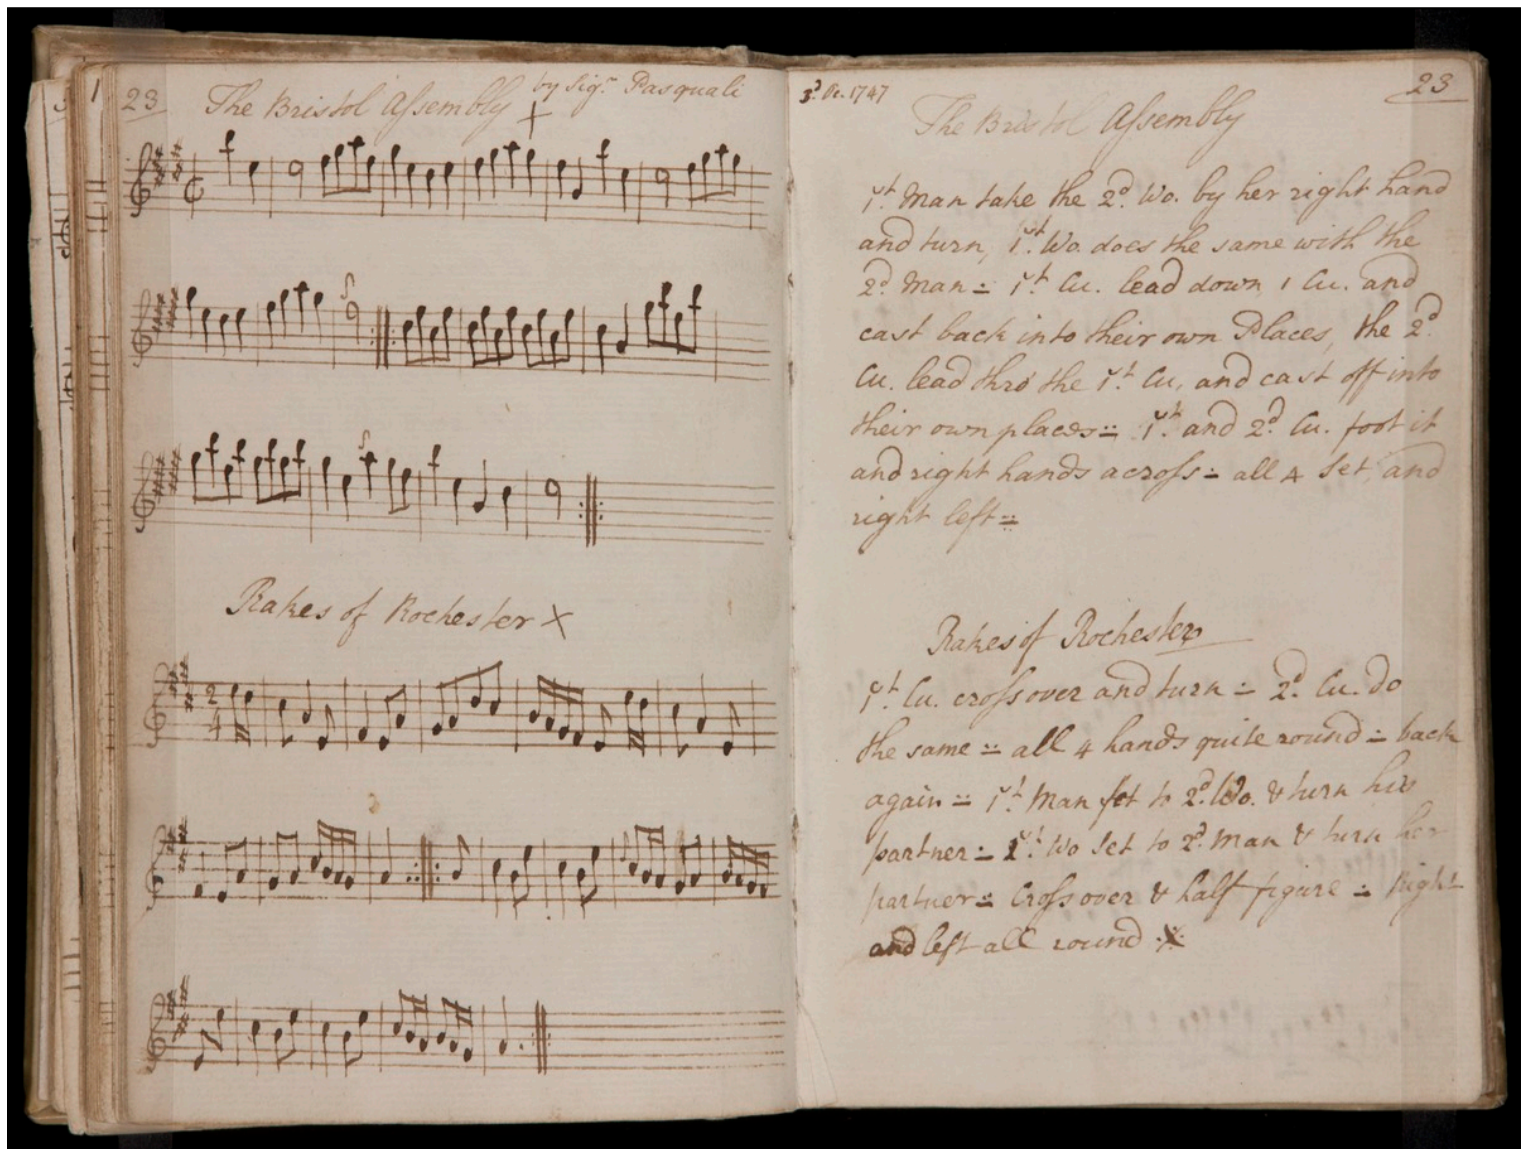 23 The Bristol Assembly by Sigr. Pasquali
Rakes of Rochester X
3d. Oc. 1747
23
The Bristol Assembly
1st. Man take the 2d. Wo. by her right hand
and turn, 1st. Wo. does the same with the
2d. Man 1st. Cu. lead down 1 Cu. and
cast back into their own Places, the 2d.
Cu. lead thro' the 1st. Cu, and cast off into
their own places 1st. and 2d. Cu. foot it
and right hands across all 4 Set, and
right left
Rakes of Rochester
1st. Cu. cross over and turn 2d. Cu. do
the same all 4 hands quite round back
again 1st. Man set to 2d. Wo. & turn his
partner 1st. Wo Set to 2d. Man & turn her
partner Cross over & half figure Right
and left all round